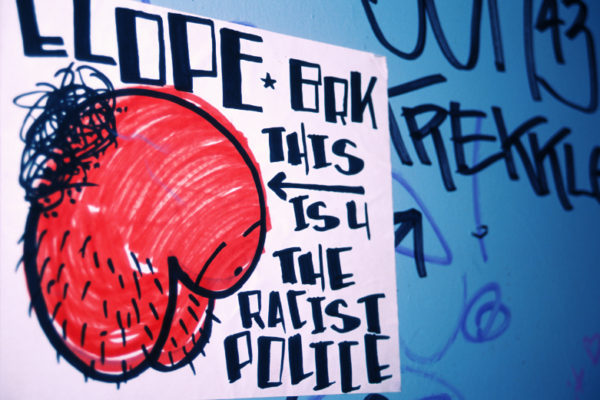 ELOPE * BRK
THIS
IS 4
THE
RACIST
POLICE
43
TREKKLE